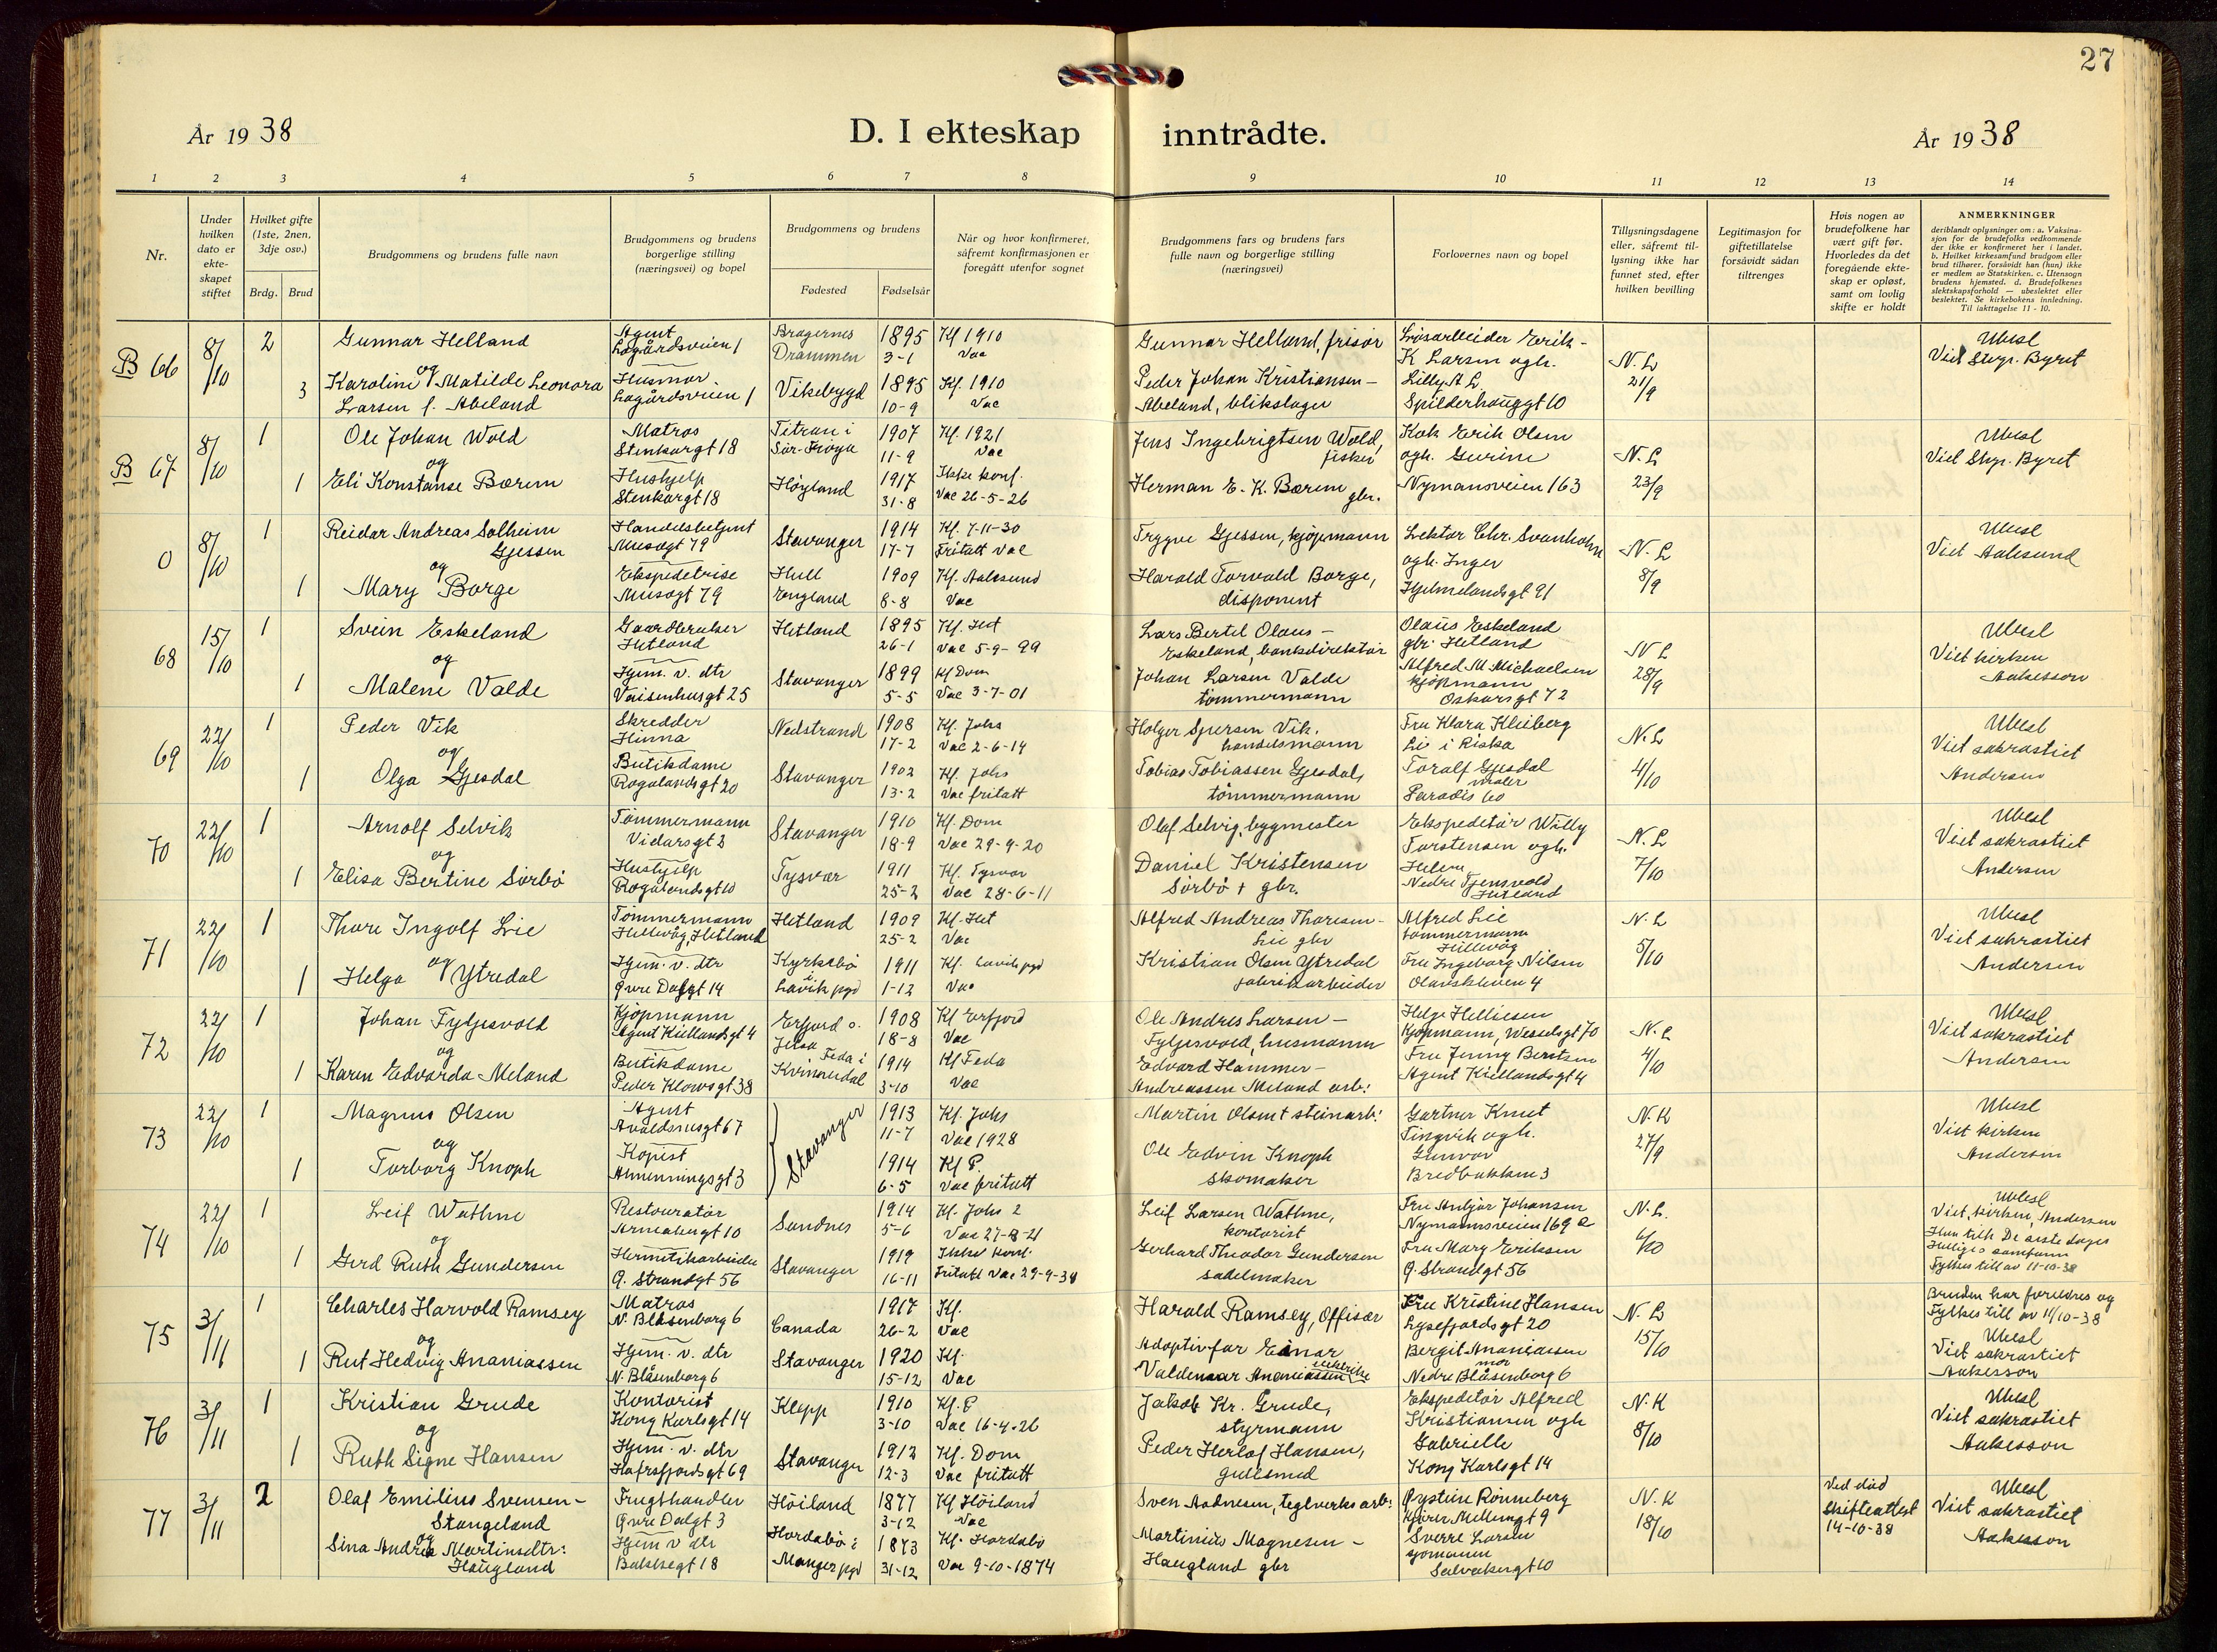 27
År 1938
D. I ekteskap inntrådte.
År 1938
1 2 3 4 5 6 7 8 9 10 11 12 13 14
Nr.
Under hvilken dato er ekte-skapet stiftet
Hvilket gifte (1ste, 2nen, 3dje osv.)
Brdg. Brud
Brudgommens og brudens fulle navn
Brudgommens og brudens borgerlige stilling (næringsvei) og bopel
Brudgommens og brudens
Fødested
Fødselsår
Når og hvor konfirmeret, såfremt konfirmasjonen er foregått utenfor sognet
Brudgommens fars og brudens fars fulle navn og borgerlige stilling (næringsvei)
Forlovernes navn og bopel
Tillysningsdagene eller, såfremt til-lysning ikke har funnet sted, efter hvilken bevilling
Legitimasjon for giftetillatelse forsåvidt sådan tiltrenges
Hvis nogen av brudefolkene har vært gift før. Hvorledes da det foregående ekte-skap er opløst, samt om lovlig skifte er holdt
ANMERKNINGER
deriblandt oplysninger om: a. Vaksina-sjon for de brudefolks vedkommende der ikke er konfirmeret her i landet. b. Hvilket kirkesamfund brudgom eller brud tilhører, forsåvidt han (hun) ikke er medlem av Statskirken. c. Utensogn brudens hjemsted. d. Brudefolkenes slektskapsforhold — ubeslektet eller beslektet. Se kirkebokens innledning. Til iakttagelse 11 - 10.
B 66 8/10 2 Gunnar Helland Agent Lagårdsveien 1 Bragernes Drammen 1895 3-1 Kf 1910 Vac Gunnar Helland, frisør Løsarbeider Erik K Larsen ogh. N. L Ubesl
og
3 Karoline Matilde Leonora Larsen f. Abeland Husmor. Lagårdsveien 1 Vikebygd 1895 10-9 Kf. 1910 Vac Peder Johan Kristiansen - Abeland, blikslager Lilly A L. Spilderhauggt 10 21/9 Viet Stvgr. Byret
B 67 8/10 1 Ole Johan Wold Matros Stenkargt 18 Titran i Sör-Fröya 1907 11-9 Kf. 1921 Vac Jens Ingebrigtsen Wold, fisker Kok Erik Olsen ogh. Gurine N. L Ubesl
og
1 Eli Konstanse Bærem Hushjelp Stenkargt 18 Høyland 1917 31-8 Ikke konf. Vac 26-5-26 Herman E. K. Bærem gbr. Nymansveien 163 23/9 Viet Stvgr. Byret
0 8/10 1 Reidar Andreas Solheim Gjessen Handelsbetjent Musegt 79 Stavanger 1914 17-7 Kf. 7-11-30 Fritatt Vac Trygve Gjessen, kjöpmann Lektor Chr. Svanholm ogh. Inger N. L Ubesl
og
1 Mary Borge Ekspeditrise Musegt 79 Hull England 1909 8-8 Kf. Aalesund Vac Harald Torvald Borge, disponent Hjelmelandsgt 91 8/9 Viet Aalesund
68 15/10 1 Svein Eskeland Gaardbruker Hetland Hetland 1895 26-1 Kf. Het Vac 5-9-99 Lars Bertel Olaus - Eskeland, bankdirektör Olaus Eskeland gbr. Hetland N L Ubesl
og
1 Malene Valde Hjem. v. dtr Vaisenhusgt 25 Stavanger 1899 5-5 Kf Dom Vac 3-7-01 Johan Larsen Valde tömmermann Alfred M Michaelsen kjöpmann Oskarsgt 72 28/9 Viet kirken Aakesson
69 22/10 1 Peder Vik Skredder Hinna Nedstrand 1908 17-2 Kf. Johs Vac 2-6-14 Holger Spersen Vik. handelsmann Fru Klara Kleiberg Lie i Riska N. L Ubesl
og
1 Olga Gjesdal Butikdame Rogalandsgt 20 Stavanger 1902 13-2 Kf. Johs Vac fritatt Tobias Tobiassen Gjesdal, tömmermann Toralf Gjesdal maler Paradis 60 4/10 Viet sakrastiet Andersen
70 22/10 1 Arnolf Selvik Tömmermann Vidarsgt 3 Stavanger 1910 18-9 Kf. Dom Vac 29-9-20 Olaf Selvig, bygmester Ekspeditör Willy Torstensen ogh. N. L Ubesl
og
1 Elisa Bertine Sörbö Hushjelp Rogalandsgt 10 Tysvær 1911 25-2 Kf. Tysvær Vac 28-6-11 Daniel Kristensen Sörbö + gbr. Helene Nedre Tjensvold Hetland 7/10 Viet sakrastiet Andersen
71 22/10 1 Thore Ingolf Lie Tömmermann Hillevåg, Hetland Hetland 1909 25-2 Kf. Het Vac Alfred Andreas Thoresen - Lie gbr Alfred Lie tömmermann Hillevåg N. L Ubesl
og
1 Helga Ytredal Hjem. v. dtr Øvre Dalgt 14 Kyrkebö i Lavik pgd 1911 1-12 Kf. Lavik pgd Vac Kristian Olsen Ytredal fabrikarbeider Fru Ingeborg Nilsen Olavskleven 4 5/10 Viet sakrastiet Andersen
72 22/10 1 Johan Fylgesvold Kjöpmann Agent Kiellandsgt 4 Erfjord o. Jelsa 1908 18-8 Kf Erfjord Vac Ole Andres Larsen - Fylgesvold, husmann Helge Helliesen Kjöpmann, Weselsgt 70 N. L Ubesl
og
1 Karen Edvarda Meland Butikdame Peder Klowsgt 38 Feda i Kvinesdal 1914 3-10 Kf Feda Vac Edvard Hammer - Andreassen Meland arb: Fru Jenny Berntsen Agent Kiellandsgt 4 4/10 Viet sakrastiet Andersen
73 22/10 1 Magnus Olsen Agent Avaldsnesgt 67 Stavanger 1913 11-7 Kf. Johs Vac 1928 Martin Olsen + steinarb: Gartner Knut Tingvik ogh. N. K Ubesl
og
1 Torborg Knoph Kopist Almenningsgt 3 1914 6-5 Kf P. Vac fritatt Ole Edvin Knoph skomaker Gunvor Bredbakken 3 27/9 Viet kirken Andersen
74 22/10 1 Leif Wathne Restauratör Arneabergt 10 Sandnes 1914 5-6 Kf. Johs 2 Vac 27-8-21 Leif Larsen Wathne, kontorist Fru Anbjör Johansen Nymannsveien 169 a N. L. Ubesl
og
1 Gerd Ruth Gundersen Hermetikarbeider Ø. Strandgt 56 Stavanger 1919 16-11 Ikke konf. Fritatt Vac 29-9-38 Gerhard Theodor Gundersen sadelmaker Fru Mary Eriksen Ø. Strandgt 56 6/10 Viet, kirken, Andersen Hun tilh De siste dages Helliges samfunn Fylkes till av 11-10-38
75 3/11 1 Charles Harvold Ramsey Matros N. Blåsenborg 6 Canada 1917 26-2 Kf. Vac Harald Ramsey, Offisör Fru Kristine Hansen Lysefjordsgt 20 N. L Bruden har foreldres og Fylkes till av 11/10-38
og
1 Rut Hedvig Ananiassen Hjem. v. dtr N. Blåsenborg 6 Stavanger 1920 15-12 Kf. Vac Adoptivfar Einar Valdemar Ananiassen Bergit Ananiassen mor Nedre Blåsenborg 6 15/10 Ubesl Viet sakrastiet Aakesson
76 3/11 1 Kristian Grude Kontorist Kong Karlsgt 14 Klepp 1910 3-10 Kf. P Vac 16-4-26 Jakob Kr. Grude, styrmann Ekspeditör Alfred Kristiansen ogh N. K Ubesl
og
1 Ruth Signe Hansen Hjem. v. dtr Hafrsfjordsgt 69 Stavanger 1912 12-3 Kf. Dom Vac fritatt Peder Herlof Hansen, gullsmed Gabrielle Kong Karlsgt 14 8/10 Viet sakrastiet Aakesson
77 3/11 2 Olaf Emilius Svensen - Stangeland Frugthandler Øvre Dalgt 3 Höiland 1877 3-12 Kf Höiland Vac Sven Aadnesen, teglverksarb: Øystein Rönneberg N. K Ved död Skifteattest 14-10-38 Ubesl
og
Sina Andrea Martinsdtr: Haugland Hjem v dtr Bakkegt 18 Hordabö i Manger pgd 1873 31-12 Kf. Hordabö Vac 9-10-1874 Martinius Magnesen - Haugland gbr Sverre Larsen sjömann 18/10 Viet sakrastiet Aakesson